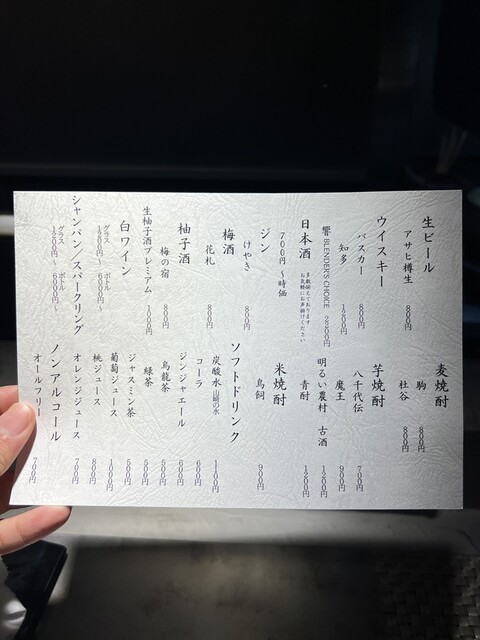 生ビール
アサヒ樽生 800円
ウイスキー
バスカー 800円
知多 1200円
響 BLENDER'S CHOICE 2200円
日本酒
多数揃えております
お気軽にお声掛けください
700円〜時価
ジン
けやき 800円
梅酒
花札 800円
柚子酒
梅の宿 800円
生柚子酒プレミアム 1000円
白ワイン
グラス ボトル
6000円〜
シャンパン/スパークリング
グラス ボトル
6000円〜
麦焼酎
駒 800円
杜谷 800円
芋焼酎
八千代伝 700円
魔王 900円
明るい農村 古酒 1200円
青酎 1200円
米焼酎
鳥飼 900円
ソフトドリンク
炭酸水 山崎の水 1100円
コーラ 600円
ジンジャエール 600円
烏龍茶 500円
緑茶 500円
ジャスミン茶 500円
葡萄ジュース 1000円
桃ジュース 800円
オレンジジュース 700円
ノンアルコール
オールフリー 700円